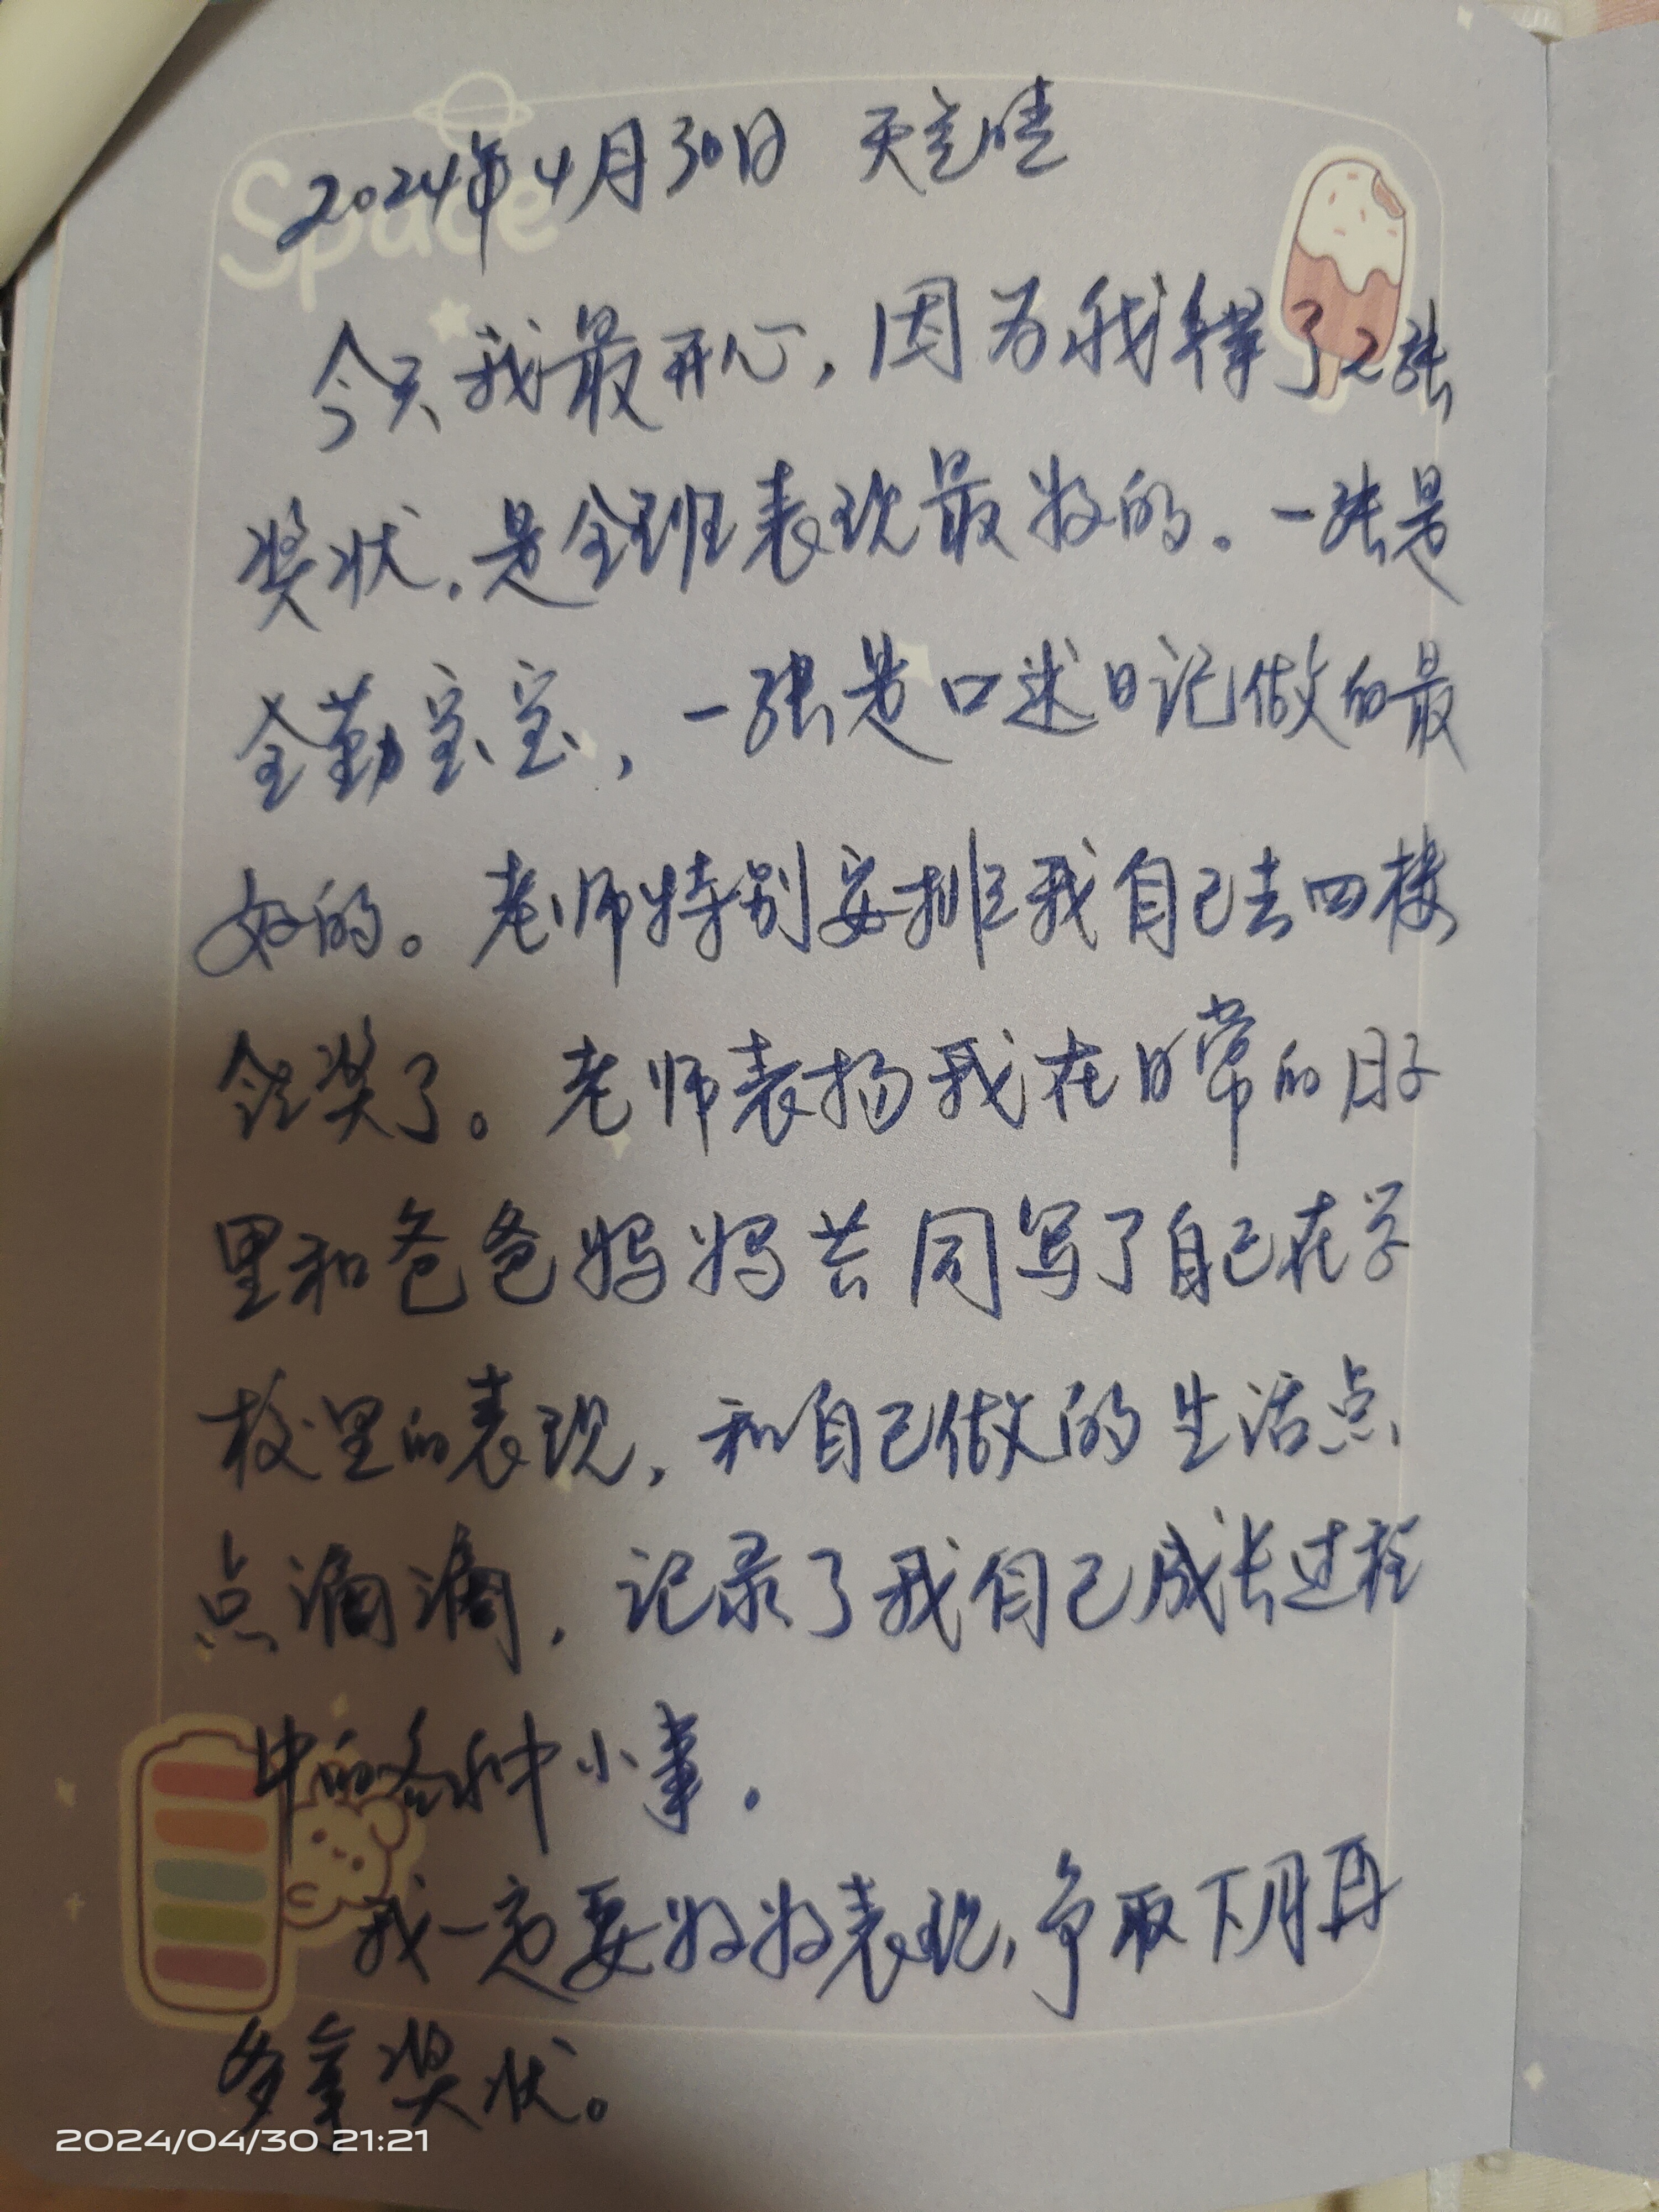 2024年4月30日 天气晴
Space
今天我最开心，因为我得了2张
奖状，是全班表现最好的。一张是
全勤宝宝，一张是口述日记做的最
好的。老师特别安排我自己去四楼
领奖了。老师表扬我在日常的日子
里和爸爸妈妈共同写了自己在学
校里的表现，和自己做的生活点
点滴滴，记录了我自己成长过程
中的各种小事。
我一定要好好表现，争取下月再
多拿奖状。
2024/04/30 21:21